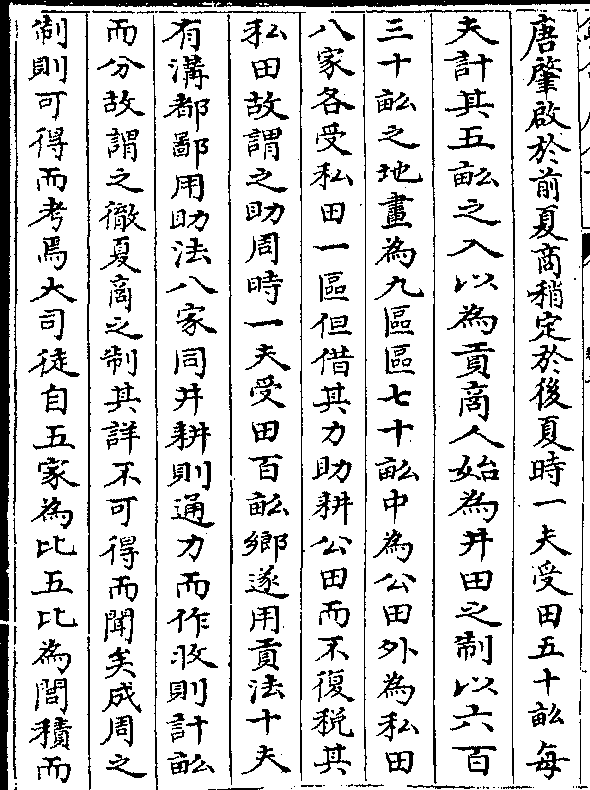 唐肇啟於前夏商稍定於後夏時一夫受田五十畝每
夫計其五畝之入以為貢商人始為井田之制以六百
三十畝之地畫為九區區七十畝中為公田外為私田
八家各受私田一區但借其力助耕公田而不復稅其
私田故謂之助周時一夫受田百畝鄉遂用貢法十夫
有溝都鄙用助法八家同井耕則通力而作收則計畝
而分故謂之徹夏商之制其詳不可得而聞矣成周之
制則可得而考焉大司徒自五家為比五比為閭積而